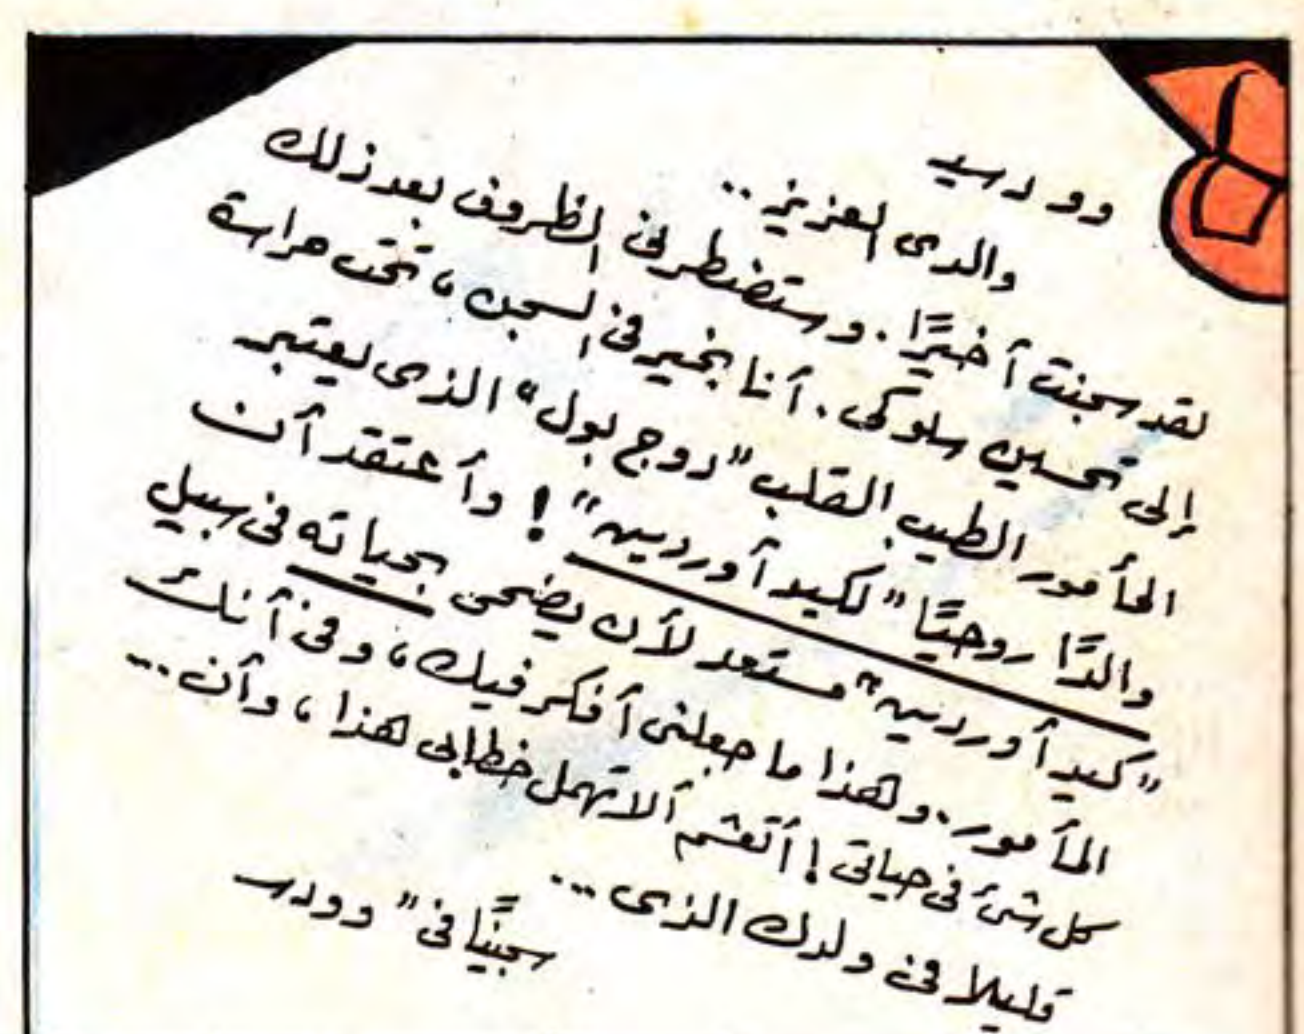 وودسيد
والدى العزيز..
لقد سجنت أخيرًا. وستضطرنى الظروف بعد ذلك
إلى تحسين سلوكى. أنا بخير فى السجن، تحت حراسة
المأمور الطيب القلب "روج بول" الذى يعتبر
والدًا روحيًا "لكيد أوردين"! وأعتقد أن
"كيد أوردين" مستعد لأن يضحى بحياته فى سبيل
المأمور. وهذا ما جعلنى أفكر فيك، وفى أنك
كل شئ فى حياتى! أتعشم ألا تهمل خطابى هذا، وأن...
قليلا فى ولدك الذى...
سجينًا فى "وودسـ